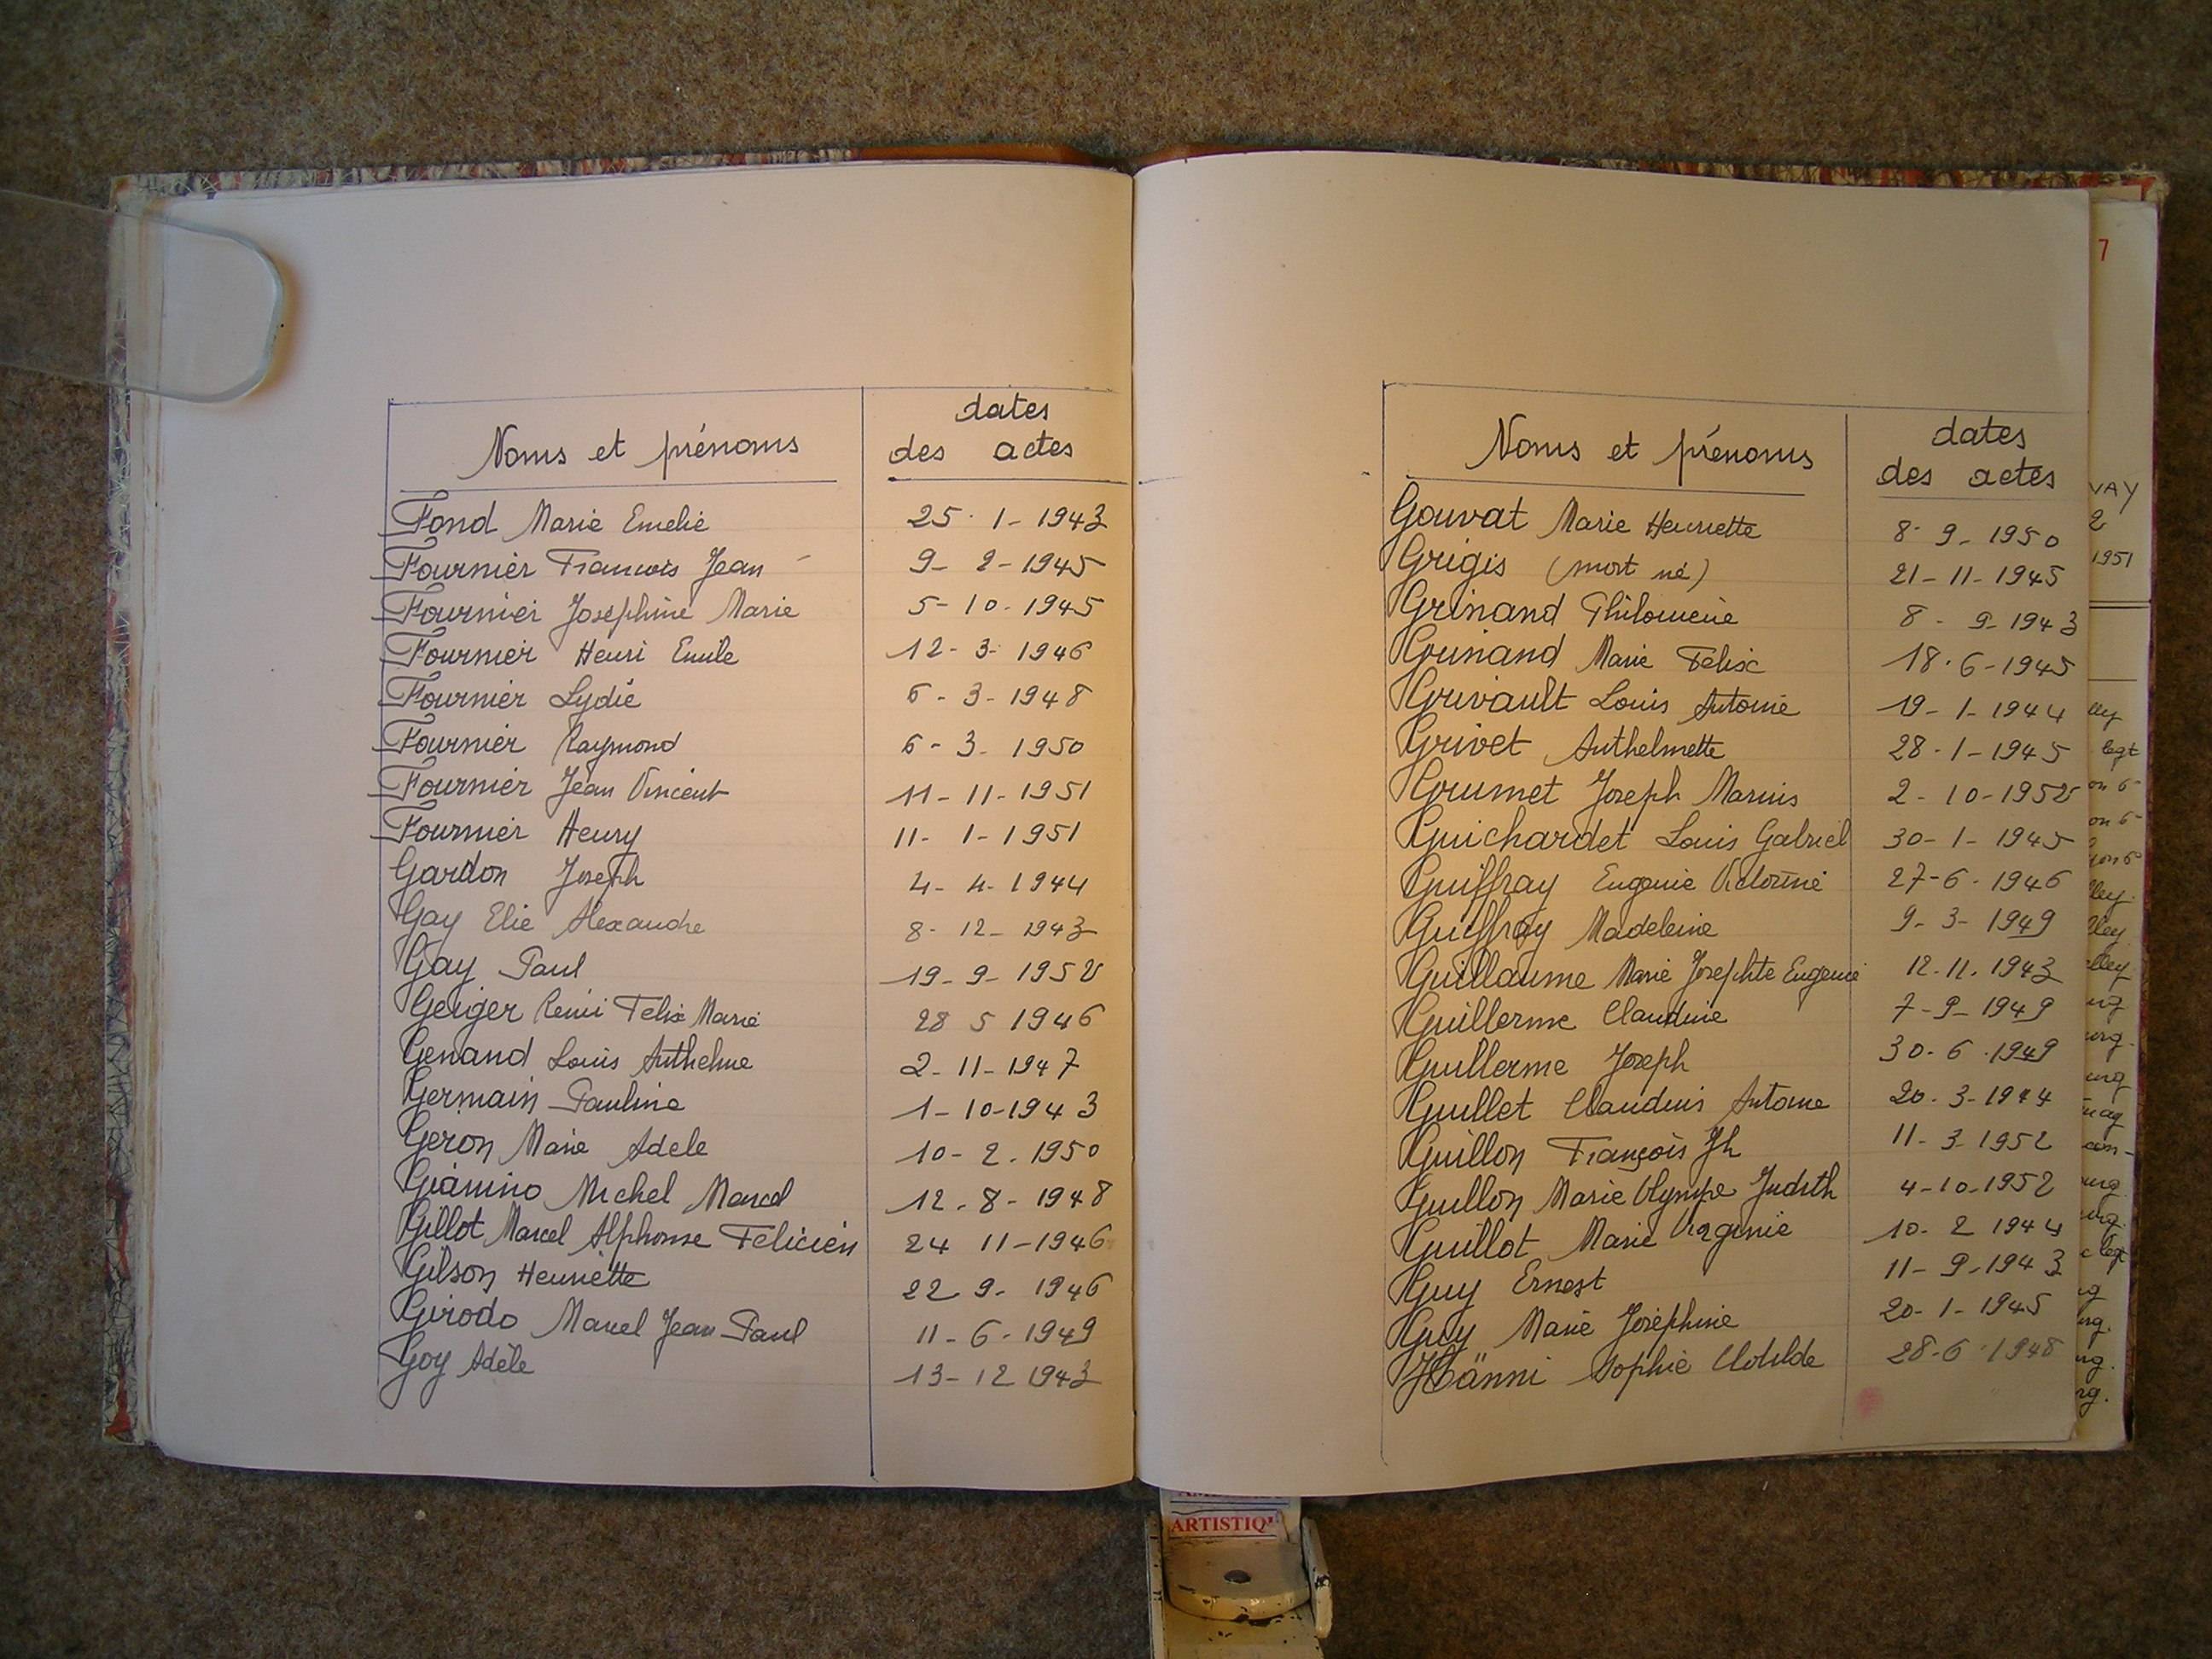 dates
Noms et prénoms des actes
Fond Marie Emelie 25-1-1943
Fournier Francois Jean 9-2-1945
Fournier Josephine Marie 5-10-1945
Fournier Henri Emile 12-3-1946
Fournier Lydie 6-3-1948
Fournier Raymond 6-3-1950
Fournier Jean Vincent 11-11-1951
Fournier Henry 11-1-1951
Gardon Joseph 4-4-1944
Gay Elie Alexandre 8-12-1943
Gay Paul 19-9-1952
Geiger Remi Felix Marie 28 5 1946
Genand Louis Anthelme 2-11-1947
Germain Pauline 1-10-1943
Geron Marie Adele 10-2-1950
Gianino Michel Marcel 12-8-1948
Gillot Marcel Alphonse Felicien 24 11-1946
Gilson Henriette 22 9-1946
Girodo Marcel Jean-Paul 11-6-1949
Goy Adèle 13-12 1943
dates
Noms et prénoms des actes
Gouvat Marie Henriette 8-9-1950
Grigis (mort né) 21-11-1945
Grinand Philomene 8-9-1943
Grinand Marie Felix 18-6-1945
Grivault Louis Antoine 19-1-1944
Grivet Anthelmette 28-1-1945
Grumet Joseph Marius 2-10-1952
Guichardet Louis Gabriel 30-1-1945
Guiffray Eugenie Victorine 27-6-1946
Guiffray Madeleine 9-3-1949
Guillaume Marie Josephte Eugenie 12-11-1943
Guillerme Claudine 7-9-1949
Guillerme Joseph 30-6-1949
Guillet Claudius Antoine 20-3-1944
Guillon François Jh 11-3-1952
Guillon Marie Olympe Judith 4-10-1952
Guillot Marie Virginie 10-2 1944
Guy Ernest 11-9-1943
Guy Marie Joséphine 20-1-1945
Hänni Sophie Clotilde 28-6-1948
7
VAY
2
1951
ARTISTIQ